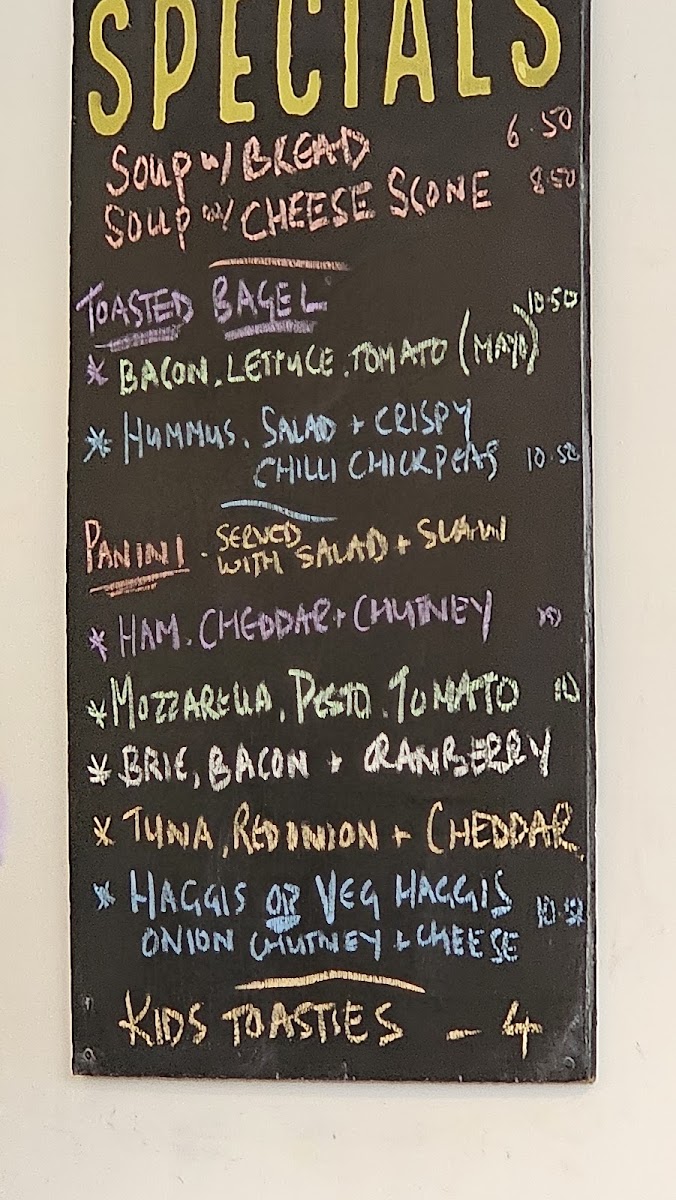 SPECIALS
SOUP w/ BREAD 6.50
SOUP w/ CHEESE SCONE 8.50
TOASTED BAGEL
* BACON, LETTUCE, TOMATO (MAYO) 10.50
* HUMMUS, SALAD + CRISPY
CHILLI CHICKPEAS 10.50
PANINI - SERVED
WITH SALAD + SLAW
* HAM, CHEDDAR + CHUTNEY 10
* MOZZARELLA, PESTO, TOMATO 10
* BRIE, BACON + CRANBERRY
* TUNA, RED ONION + CHEDDAR
* HAGGIS OR VEG HAGGIS
ONION CHUTNEY + CHEESE 10.50
KIDS TOASTIES - 4